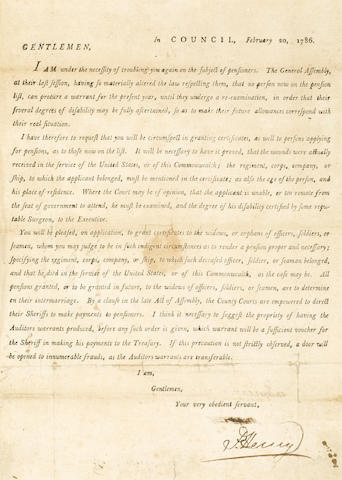 In COUNCIL, February 20, 1786.
GENTLEMEN,
I AM under the necessity of troubling you again on the subject of pensioners. The General Assembly,
at their last session, having so materially altered the law respecting them, that no person now on the pension
list, can procure a warrant for the present year, until they undergo a re-examination, in order that their
several degrees of disability may be fully ascertained, so as to make their future allowances correspond with
their real situation.
I have therefore to request that you will be circumspect in granting certificates, as well to persons applying
for pensions, as to those now on the list. It will be necessary to have it proved, that the wounds were actually
received in the service of the United States, or of this Commonwealth; the regiment, corps, company, or
ship, to which the applicant belonged, must be mentioned in the certificate; as also the age of the person, and
his place of residence. Where the Court may be of opinion, that the applicant is unable, or too remote from
the seat of government to attend, he must be examined, and the degree of his disability certified by some repu-
table Surgeon, to the Executive.
You will be pleased, on application, to grant certificates to the widows, or orphans of officers, soldiers, or
seamen, whom you may judge to be in such indigent circumstances as to render a pension proper and necessary;
specifying the regiment, corps, company, or ship, to which such deceased officer, soldier, or seaman belonged,
and that he died in the service of the United States, or of this Commonwealth, as the case may be. All
pensions granted, or to be granted in future, to the widows of officers, soldiers, or seamen, are to determine
on their intermarriage. By a clause in the late Act of Assembly, the County Courts are empowered to direct
their Sheriffs to make payments to pensioners. I think it necessary to suggest the propriety of having the
Auditors warrants produced, before any such order is given, which warrant will be a sufficient voucher for
the Sheriff in making his payments to the Treasury. If this precaution is not strictly observed, a door will
be opened to innumerable frauds, as the Auditors warrants are transferable.
I am,
Gentlemen,
Your very obedient servant,
P. Henry